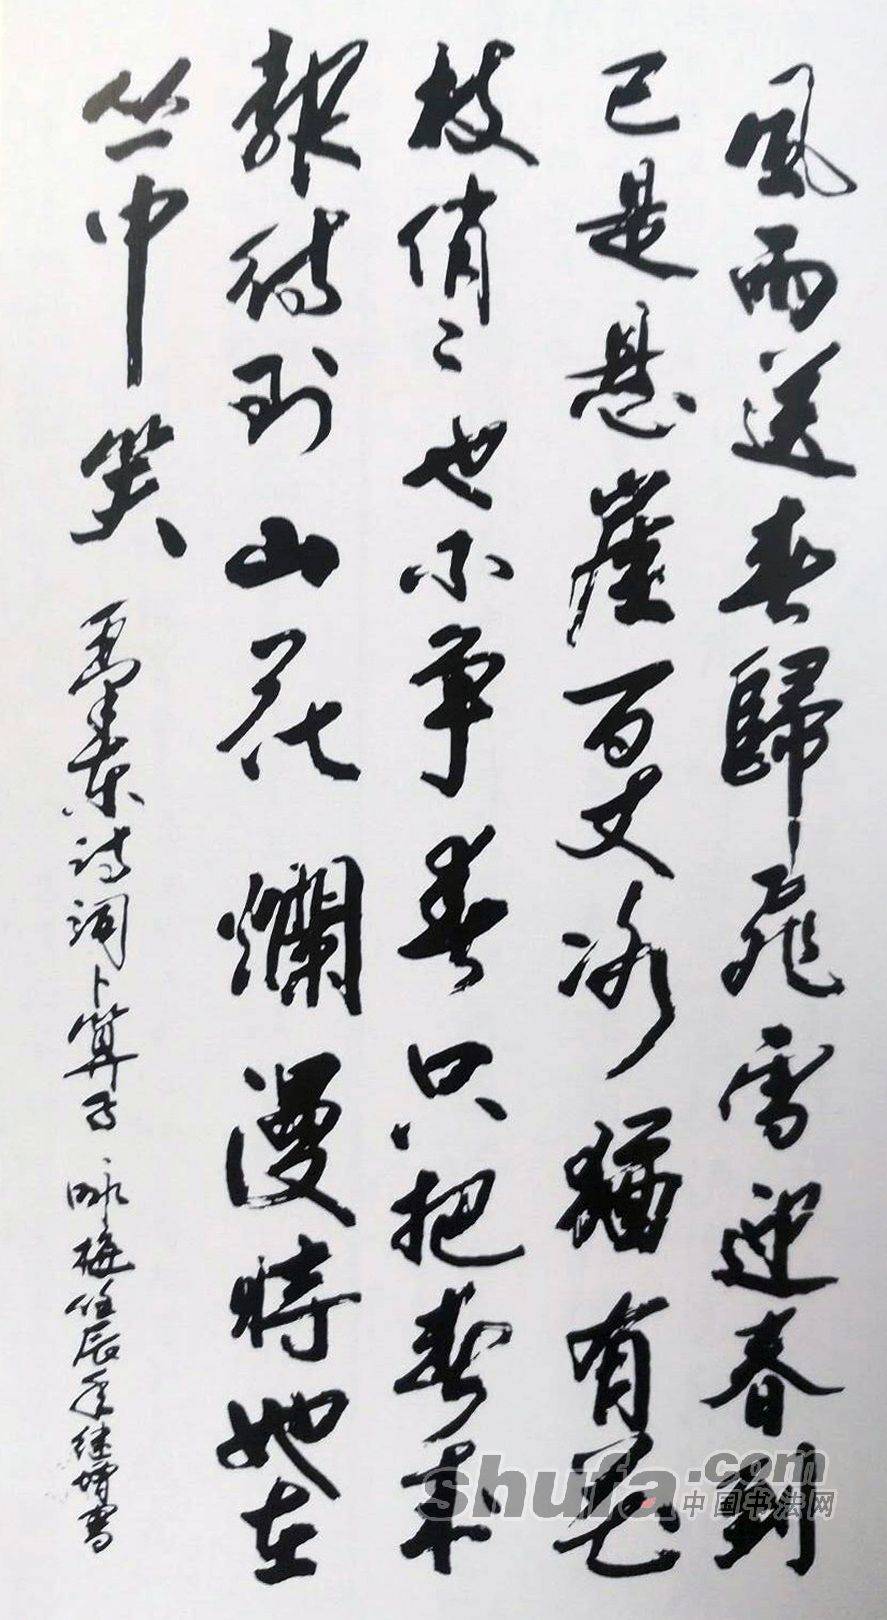 風雨送春歸飛雪迎春到
已是悬崖百丈冰猶有花
枝俏々也不争春只把春来
報待到山花爛漫時她在
丛中笑
毛泽东诗词卜算子 咏梅 壬辰年继書
shufa.com
中国书法网